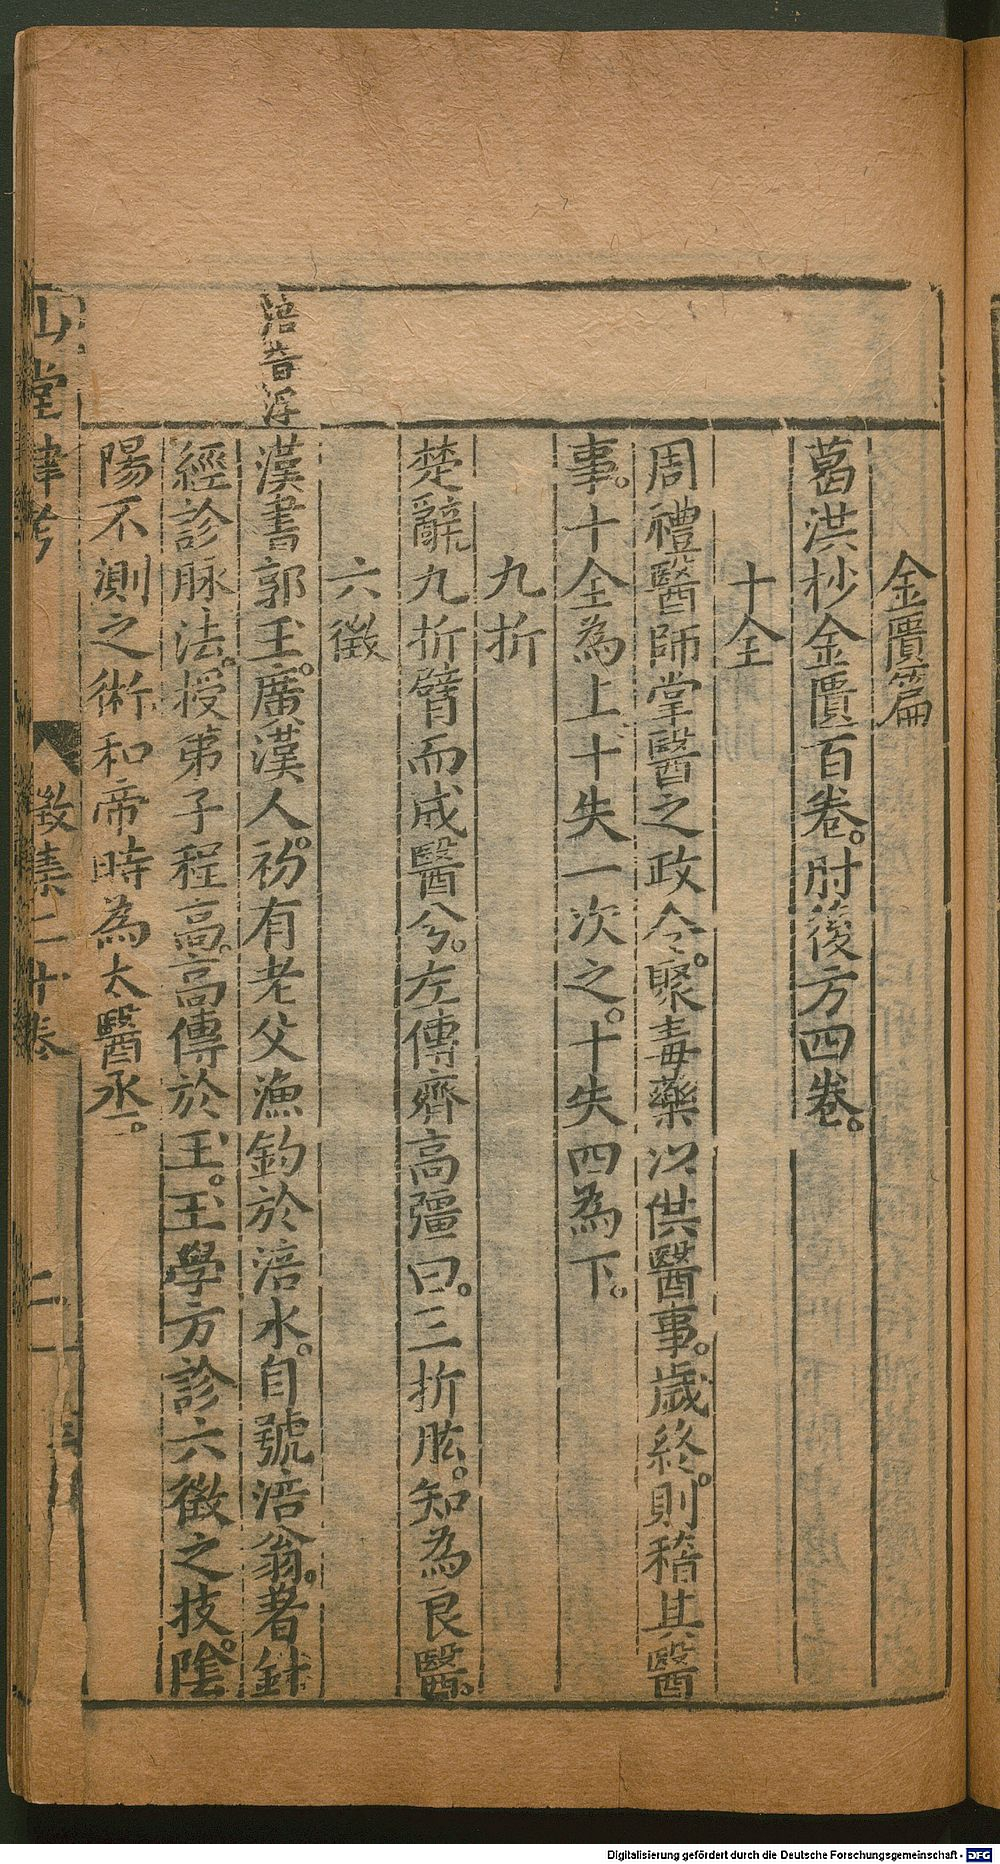 金匱篇
葛洪抄金匱百卷。肘後方四卷。
十全
周禮醫師掌醫之政令。聚毒藥以供醫事。歲終。則稽其醫
事。十全為上。十失一次之。十失四為下。
九折
楚辭九折臂而成醫兮。左傳齊高彊曰。三折肱。知為良醫。
六徵
涪音浮
漢書郭玉。廣漢人。初有老父漁釣於涪水。自號涪翁。著針
經診脉法。授弟子程高。高傳於玉。玉學方診六徵之技。陰
陽不測之術。和帝時為太醫丞。
山堂肆考
徵集二十卷
二
Digitalisierung gefördert durch die Deutsche Forschungsgemeinschaft - DFG